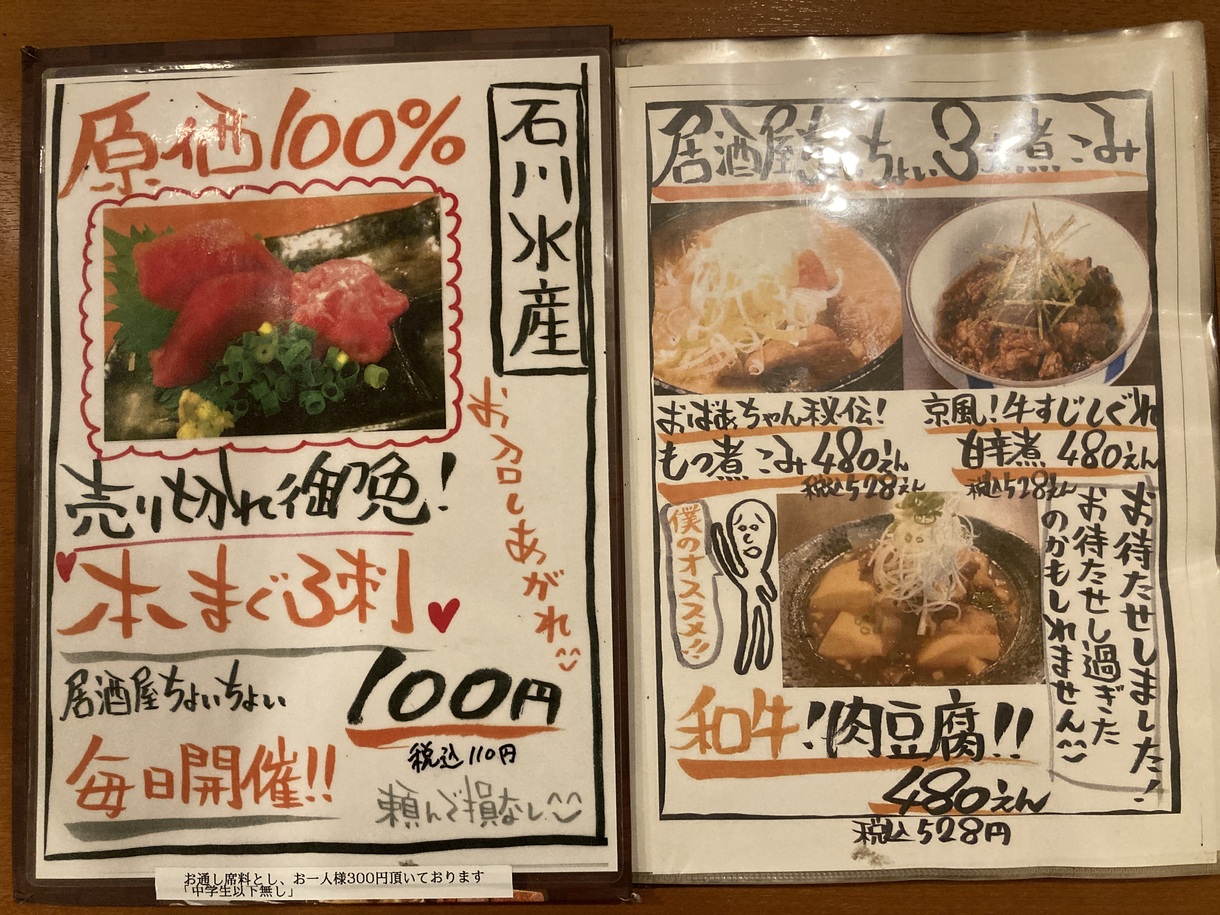 原価100%
石川水産
お召しあがれ
売り切れ御免!
本まぐろ刺
居酒屋ちょいちょい
100円
税込110円
毎日開催!!
頼んで損なし^^
お通し席料とし、お一人様300円頂いております
「中学生以下無し」
居酒屋ちょいちょい3大煮こみ
おばあちゃん秘伝!
もつ煮こみ480えん
税込528えん
京風!牛すじしぐれ
甘辛煮480えん
税込528えん
僕のオススメ!!
お待たせしました!
お待たせし過ぎた
のかもしれません^^
和牛!肉豆腐!!
480えん
税込528円